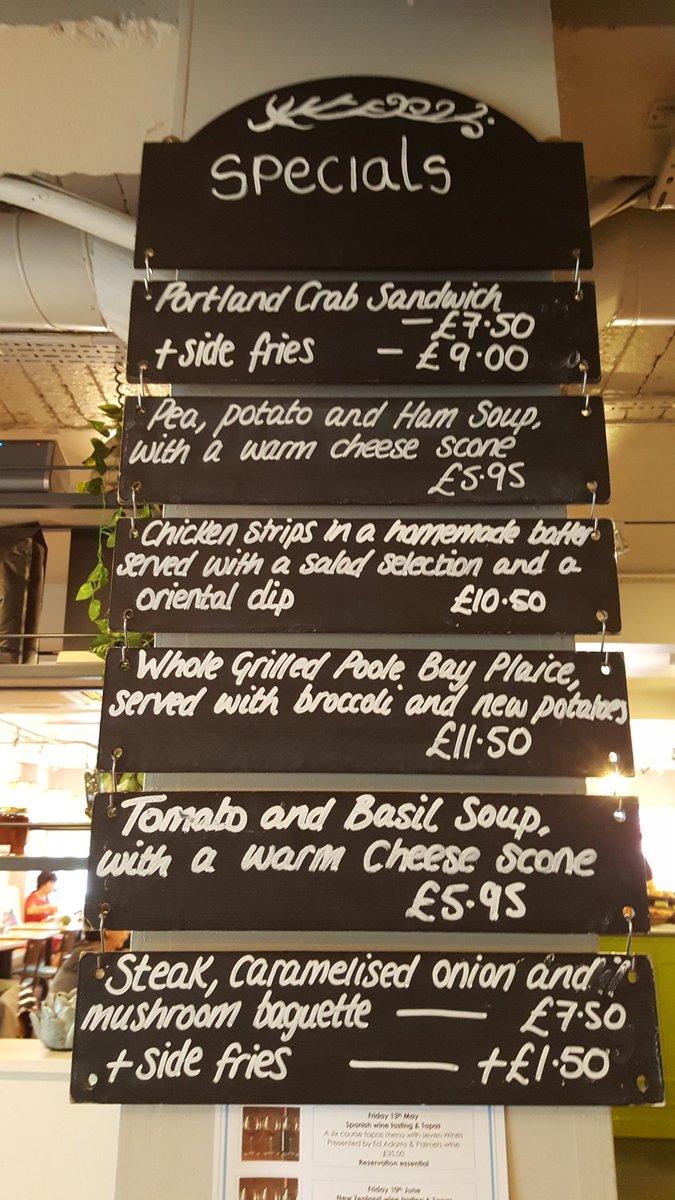 Specials
Portland Crab Sandwich
- £7.50
+ side fries - £9.00
Pea, potato and Ham Soup,
with a warm cheese scone
£5.95
Chicken strips in a homemade batter
served with a salad selection and a
oriental dip £10.50
Whole Grilled Poole Bay Plaice,
served with broccoli and new potatoes
£11.50
Tomato and Basil Soup,
with a warm Cheese scone
£5.95
Steak, caramelised onion and
mushroom baguette — £7.50
+ side fries — +£1.50
Friday 13th May
Spanish wine tasting & Tapas
A six course tapas menu with seven Wines
Presented by Ed Adams & Palmers wine
£35.00
Reservation essential
Friday 10th June
New Zealand wine tasting & Tapas